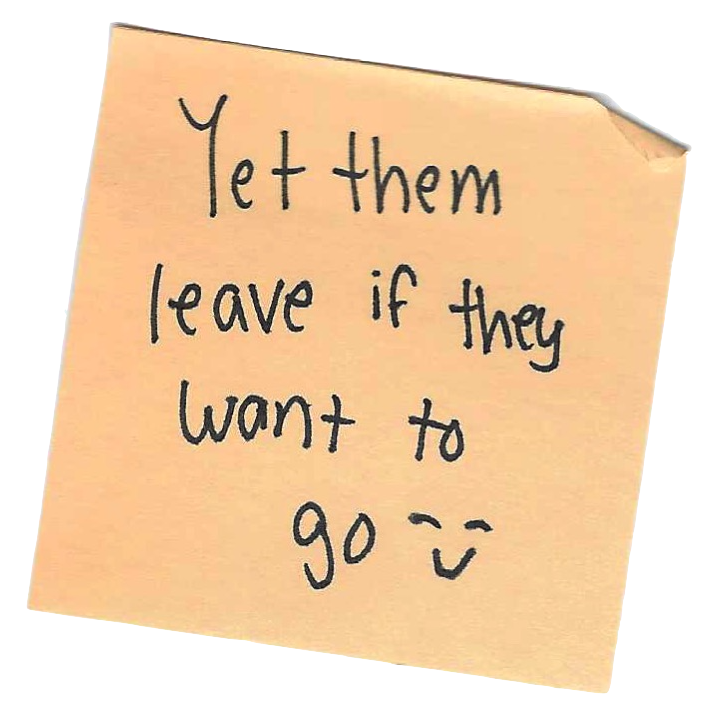 Yet them
leave if they
want to
go